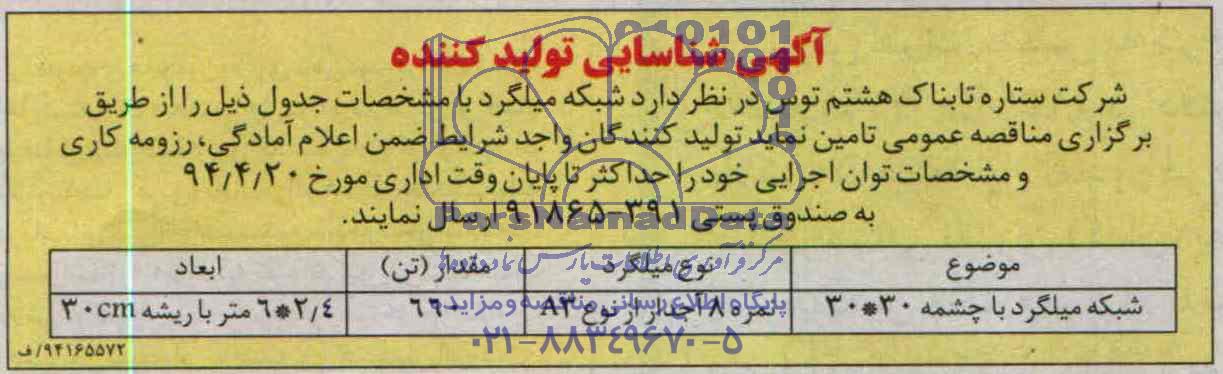 آگهی شناسایی تولید کننده
شرکت ستاره تابناک هشتم توس در نظر دارد شبکه میلگرد با مشخصات جدول ذیل را از طریق
برگزاری مناقصه عمومی تامین نماید تولید کنندگان واجد شرایط ضمن اعلام آمادگی، رزومه کاری
و مشخصات توان اجرایی خود را حداکثر تا پایان وقت اداری مورخ ۹۴/۴/۲۰
به صندوق پستی ۳۹۱-۹۱۸۶۵ ارسال نمایند.
ParsNamadData
مرکز فرآوری اطلاعات پارس نماد داده ها
موضوع نوع میلگرد مقدار (تن) ابعاد
شبکه میلگرد با چشمه ۳۰*۳۰ نمره ۸ آجدار از نوع A3 ۶۶۰ ۲,۴*۶ متر با ریشه ۳۰cm
پایگاه اطلاع رسانی مناقصه و مزایده
۰۲۱-۸۸۳۴۹۶۷۰-۵
۹۴۱۶۵۵۷۲/ف